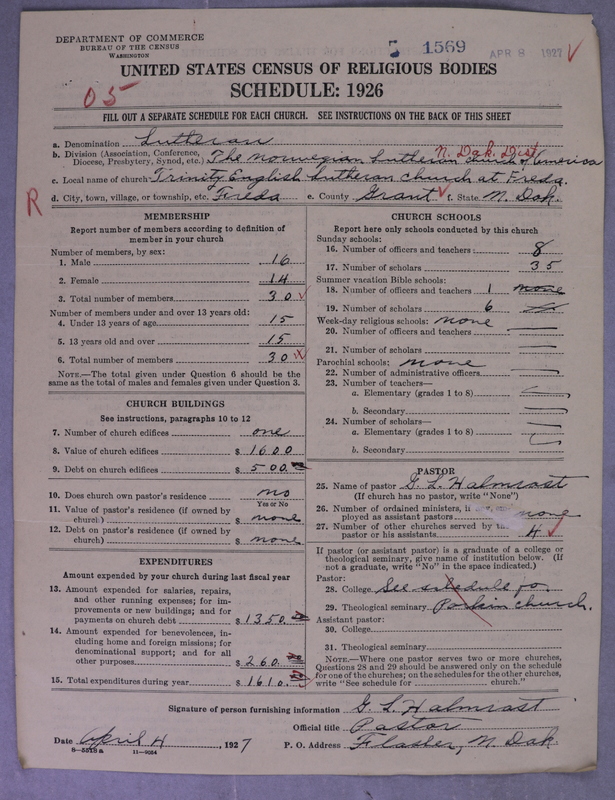 DEPARTMENT OF COMMERCE
BUREAU OF THE CENSUS
WASHINGTON
5 1569
APR 8 1927
UNITED STATES CENSUS OF RELIGIOUS BODIES
SCHEDULE: 1926
05
FILL OUT A SEPARATE SCHEDULE FOR EACH CHURCH. SEE INSTRUCTIONS ON THE BACK OF THIS SHEET
a. Denomination Lutheran
N. Dak. Dist
b. Division (Association, Conference, Diocese, Presbytery, Synod, etc.) The Norwegian Lutheran Church of America
c. Local name of church Trinity English Lutheran Church at Freda.
R
d. City, town, village, or township, etc. Freda e. County Grant f. State N. Dak.
MEMBERSHIP
Report number of members according to definition of
member in your church
Number of members, by sex:
1. Male 16
2. Female 14
3. Total number of members 30
Number of members under and over 13 years old:
4. Under 13 years of age 15
5. 13 years old and over 15
6. Total number of members 30
NOTE.—The total given under Question 6 should be
same as the total of males and females given under Question 3.
CHURCH BUILDINGS
See instructions, paragraphs 10 to 12
7. Number of church edifices one
8. Value of church edifices $ 1600
9. Debt on church edifices $ 500.00
10. Does church own pastor's residence no
Yes or No
11. Value of pastor's residence (if owned by
church) $ none
12. Debt on pastor's residence (if owned by
church) $ none
EXPENDITURES
Amount expended by your church during last fiscal year
13. Amount expended for salaries, repairs,
and other running expenses; for im-
provements or new buildings; and for
payments on church debt $ 1350.00
14. Amount expended for benevolences, in-
cluding home and foreign missions; for
denominational support; and for all
other purposes $ 260.00
15. Total expenditures during year $ 1610.00
CHURCH SCHOOLS
Report here only schools conducted by this church
Sunday schools:
16. Number of officers and teachers 8
17. Number of scholars 35
Summer vacation Bible schools:
18. Number of officers and teachers 1 none
19. Number of scholars 6
Week-day religious schools: none
20. Number of officers and teachers
21. Number of scholars
Parochial schools: none
22. Number of administrative officers
23. Number of teachers—
a. Elementary (grades 1 to 8)
b. Secondary
24. Number of scholars—
a. Elementary (grades 1 to 8)
b. Secondary
PASTOR
25. Name of pastor G. L. Halmrast
(If church has no pastor, write "None")
26. Number of ordained ministers, if any, em-
ployed as assistant pastors none
27. Number of other churches served by
pastor or his assistants 4
If pastor (or assistant pastor) is a graduate of a college or
theological seminary, give name of institution below. (If
not a graduate, write "No" in the space indicated.)
Pastor:
28. College See schedule for
29. Theological seminary church.
Assistant pastor:
30. College
31. Theological seminary
NOTE.—Where one pastor serves two or more churches,
Questions 28 and 29 should be answered only on the schedule
for one of the churches; on the schedules for the other churches,
write "See schedule for church."
Signature of person furnishing information G. L. Halmrast
Official title Pastor
Date April 4, 1927 P. O. Address Flasher, N. Dak
8—5518a 11—9054